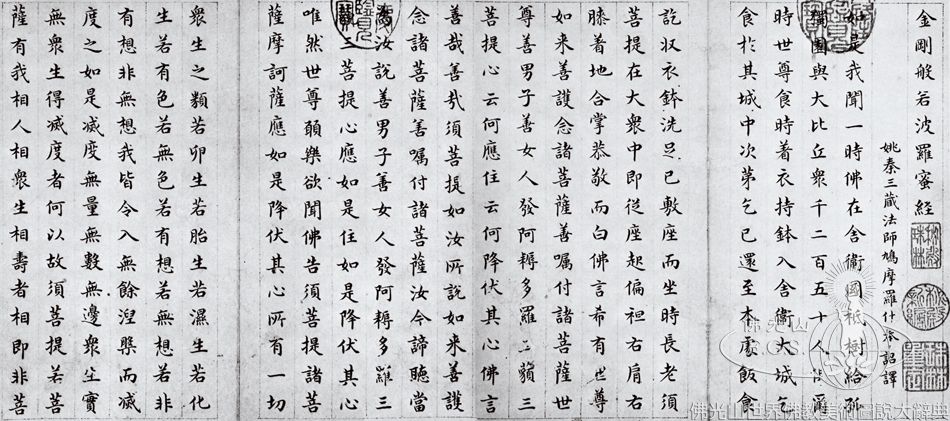 金剛般若波羅蜜經
姚秦三藏法師鳩摩羅什奉詔譯
如是我聞一時佛在舍衛國祇樹給孤
獨園與大比丘衆千二百五十人俱爾
時世尊食時着衣持鉢入舍衛大城乞
食於其城中次第乞已還至本處飯食
訖収衣鉢洗足已敷座而坐時長老須
菩提在大衆中即從座起偏袒右肩右
膝着地合掌恭敬而白佛言希有世尊
如来善護念諸菩薩善嘱付諸菩薩世
尊善男子善女人發阿耨多羅三藐三
菩提心云何應住云何降伏其心佛言
善哉善哉須菩提如汝所說如来善護
念諸菩薩善嘱付諸菩薩汝今諦聽當
爲汝說善男子善女人發阿耨多羅三
藐三菩提心應如是住如是降伏其心
唯然世尊願樂欲聞佛告須菩提諸菩
薩摩訶薩應如是降伏其心所有一切
衆生之類若卵生若胎生若濕生若化
生若有色若無色若有想若無想若非
有想非無想我皆令入無餘涅槃而滅
度之如是滅度無量無數無邊衆生實
無衆生得滅度者何以故須菩提若菩
薩有我相人相衆生相壽者相即非菩
佛光山
佛光山世界佛教美術圖說大辭典